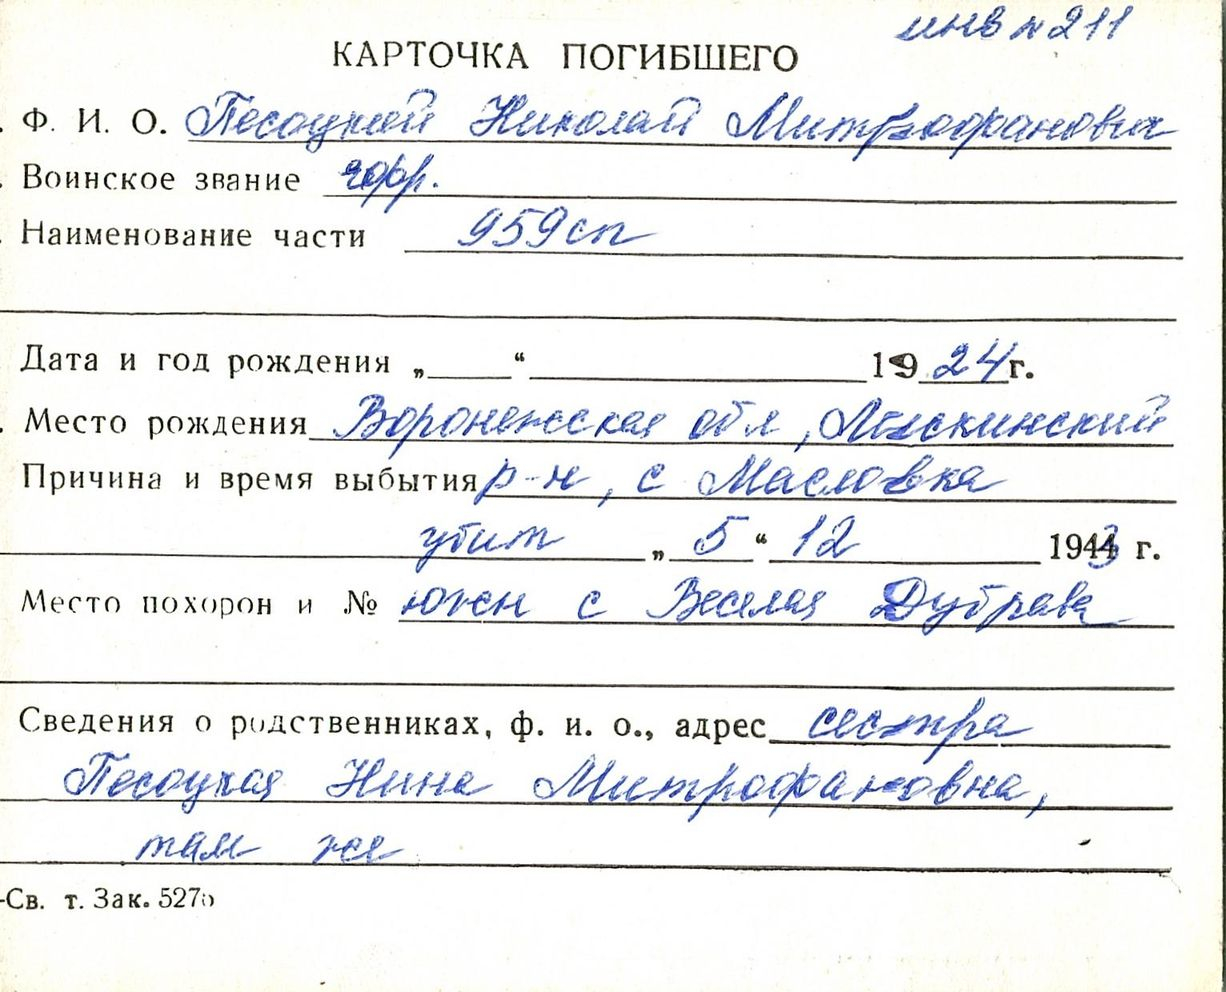 инв № 211
КАРТОЧКА ПОГИБШЕГО
Ф. И. О. Песоцкий Николай Митрофанович
Воинское звание
Наименование части 959 сп
Дата и год рождения „ “ 1924 г.
Место рождения Воронежская обл, Лискинский
Причина и время выбытия р-н, с Масловка
убит „ 5 “ 12 1943 г.
Место похорон и № южн с Веселая Дубрава
Сведения о родственниках, ф. и. о., адрес сестра
Песоцкая Нина Митрофановна,
там же
-Св. т. Зак.